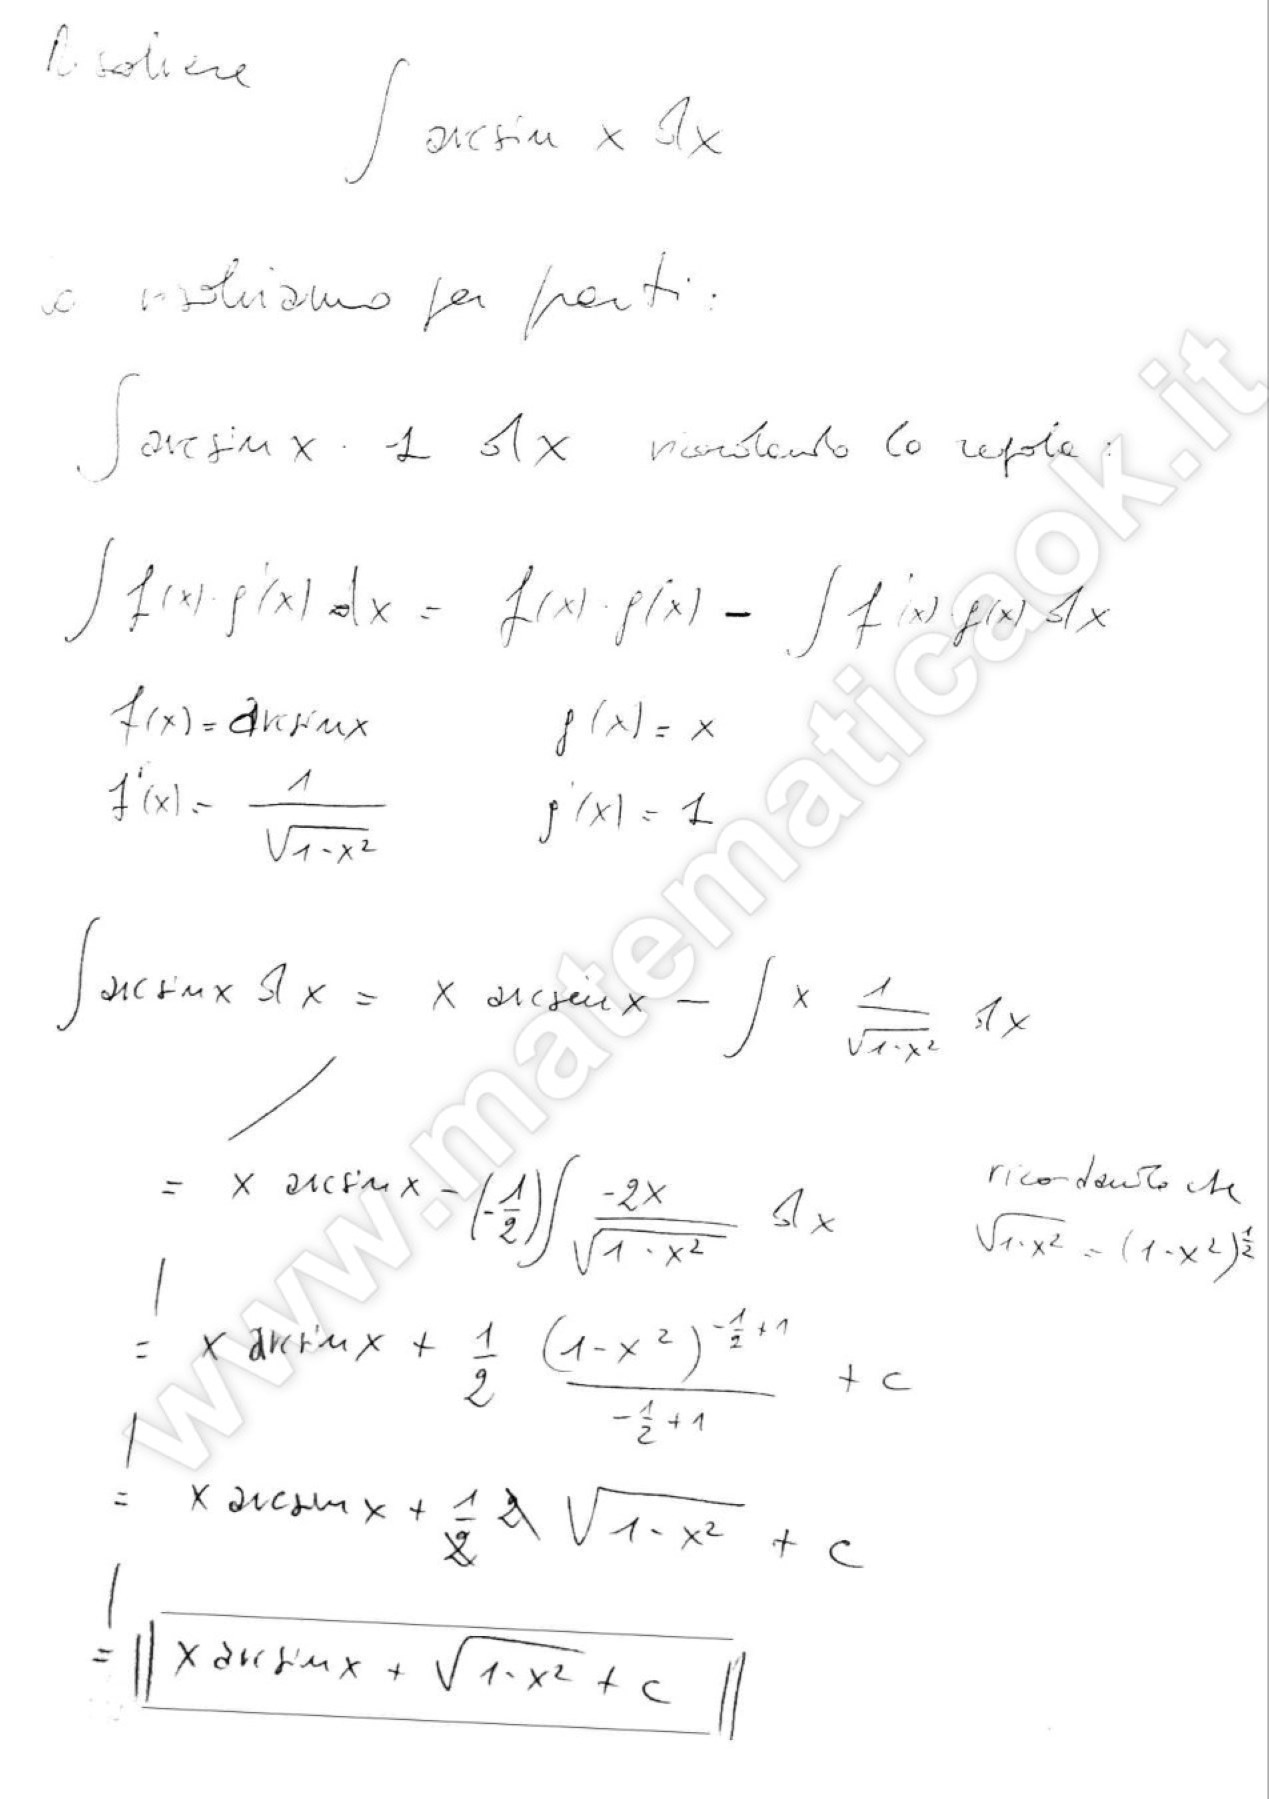 Risolvere
∫ arcsin x dx
lo risolviamo per parti:
∫ arcsin x · 1 dx ricordando la regola:
∫ f(x) · g'(x) dx = f(x) · g(x) - ∫ f'(x) g(x) dx
f(x) = arcsin x g(x) = x
f'(x) = 1/√(1-x²) g'(x) = 1
∫ arcsin x dx = x arcsin x - ∫ x 1/√(1-x²) dx
= x arcsin x - (-1/2) ∫ -2x/√(1-x²) dx
ricordando che
√(1-x²) = (1-x²)^(1/2)
= x arcsin x + 1/2 (1-x²)^(-1/2+1)/(-1/2+1) + c
= x arcsin x + 1/2 2 √(1-x²) + c
= x arcsin x + √(1-x²) + c
www.matematicaok.it